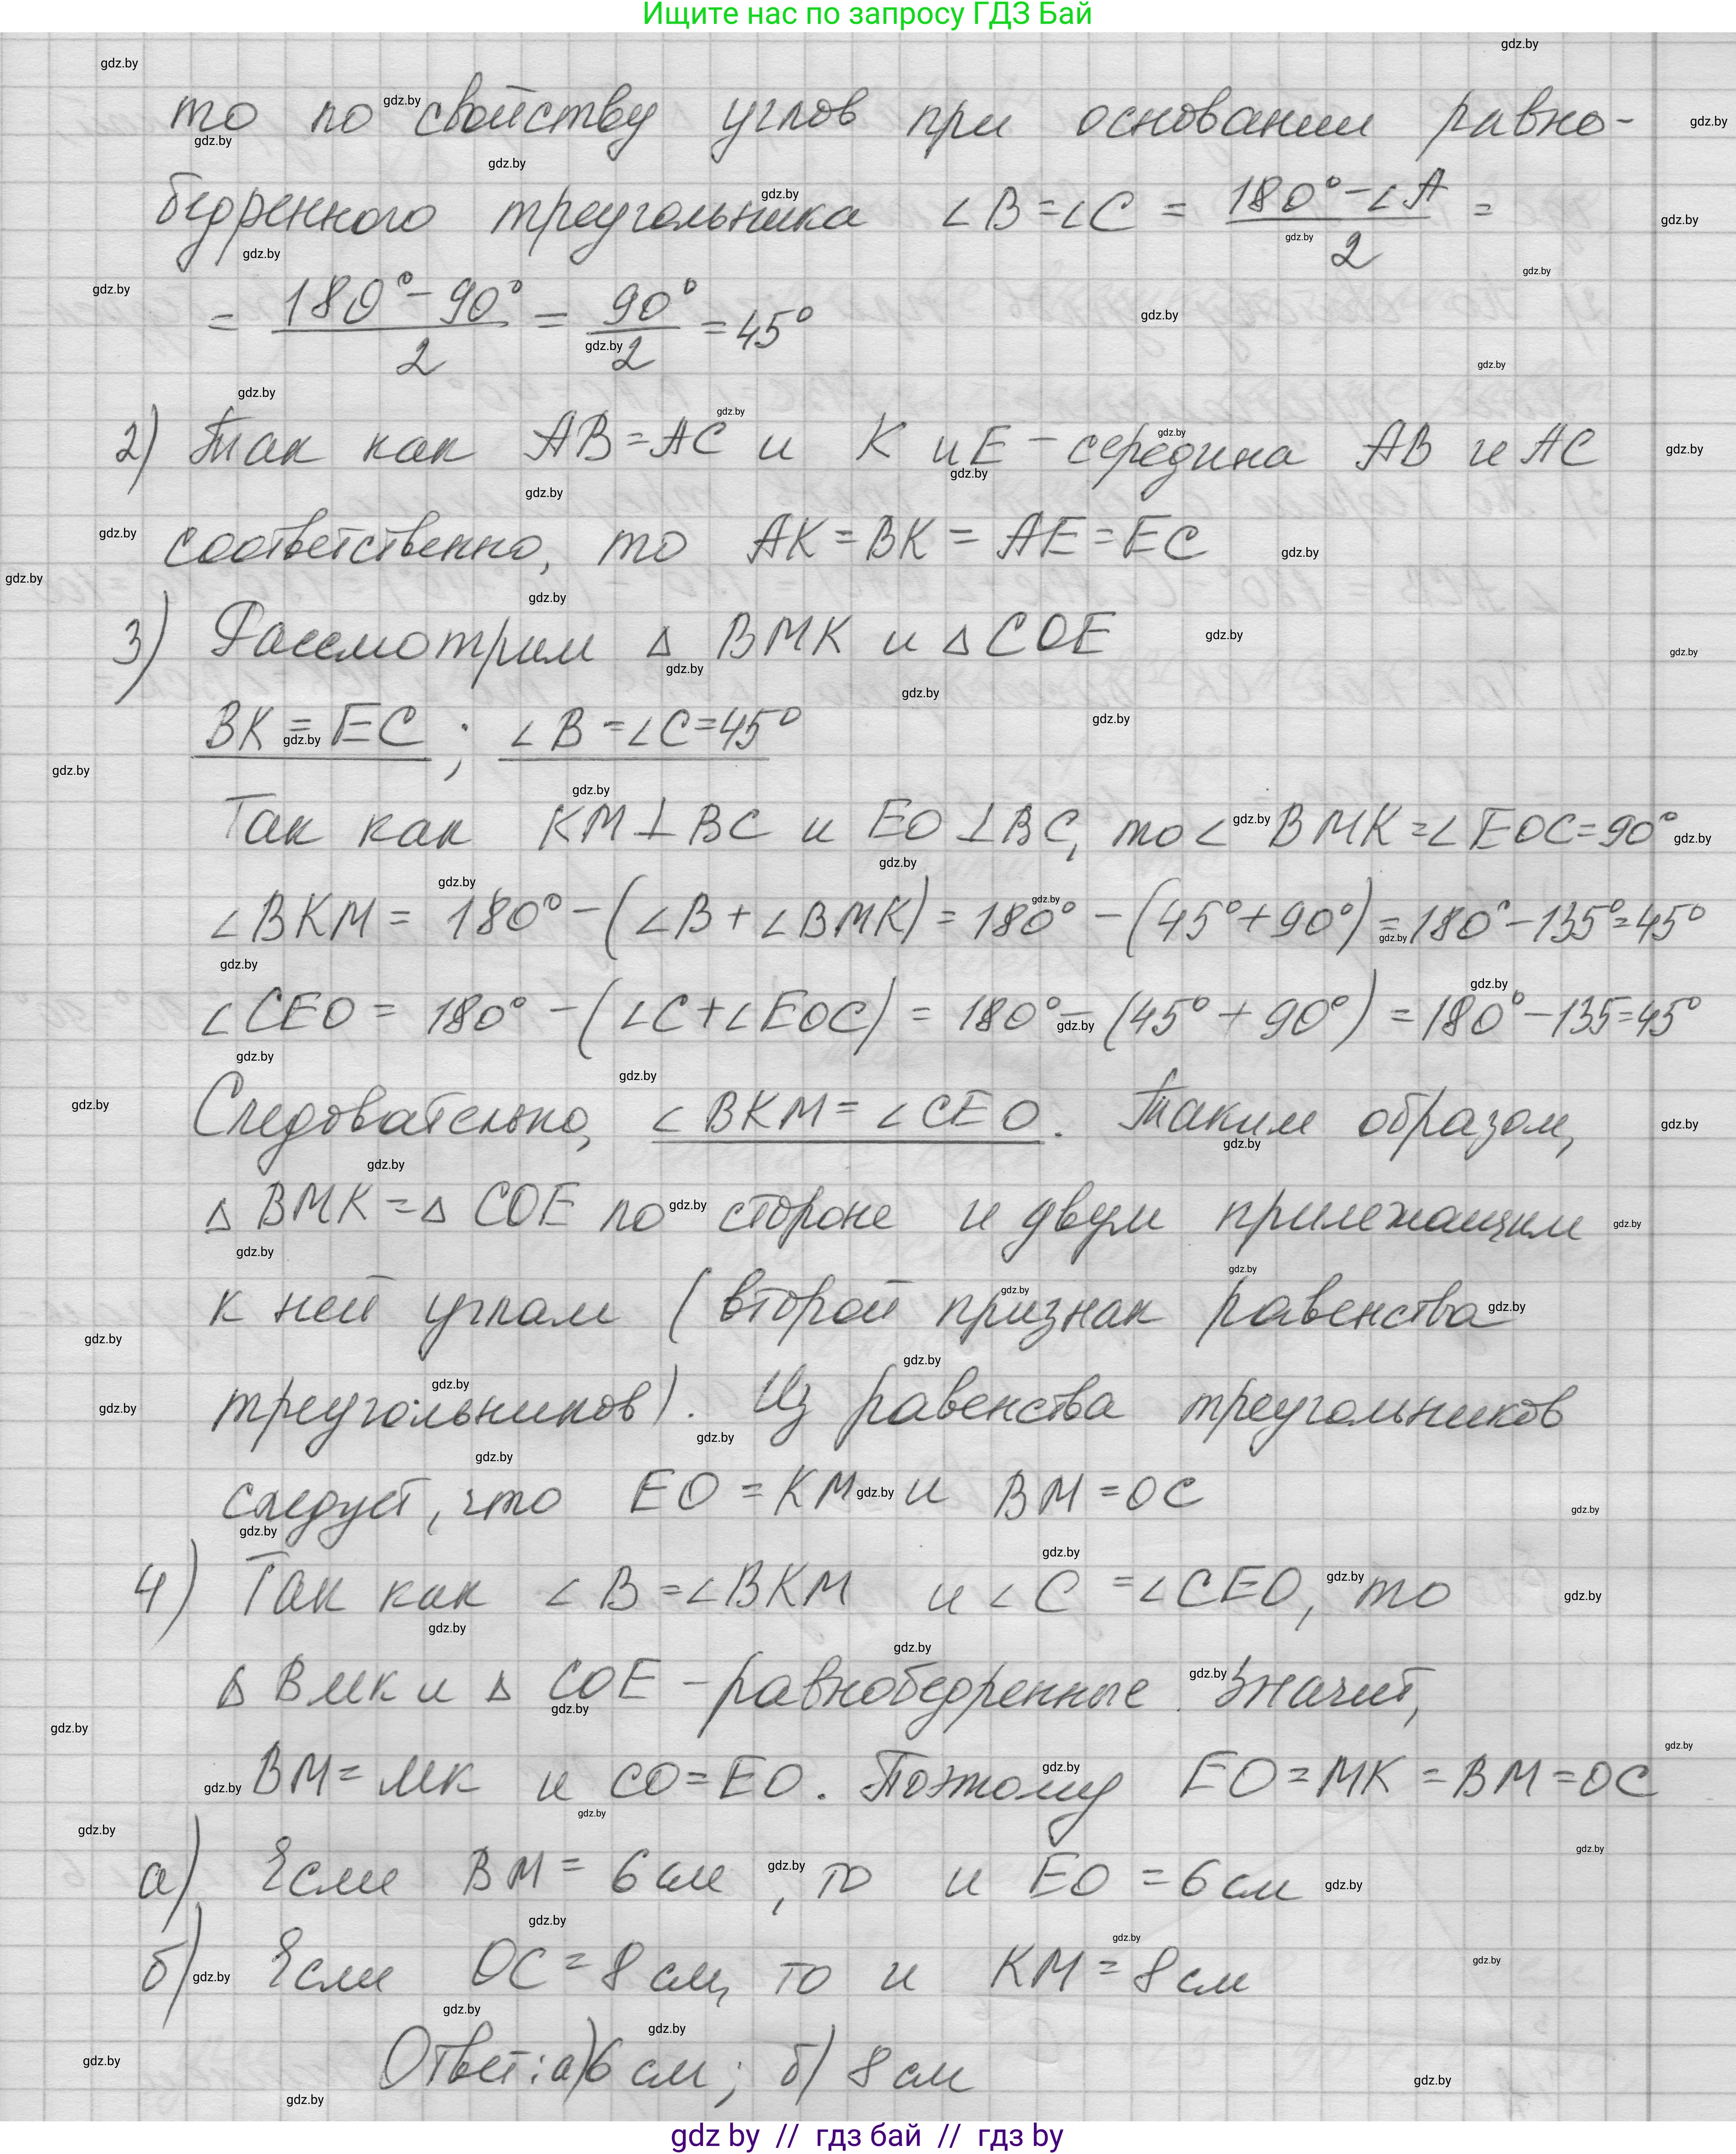 Ищите нас по запросу ГДЗ Бай
то по свойству углов при основании равно-
бедренного треугольника ∠B=∠C = (180°-∠A)/2 =
= (180°-90°)/2 = 90°/2 = 45°
2) Так как AB=AC и K и E - середина AB и AC
соответственно, то AK=BK=AE=EC
3) Рассмотрим △ BMK и △ COE
BK=EC ; ∠B=∠C=45°
Так как KM⊥BC и EO⊥BC, то ∠BMK=∠EOC=90°
∠BKM = 180°-(∠B+∠BMK)=180°-(45°+90°)=180°-135°=45°
∠CEO = 180°-(∠C+∠EOC)=180°-(45°+90°)=180°-135=45°
Следовательно, ∠BKM=∠CEO. Таким образом,
△ BMK=△ COE по стороне и двум прилежащим
к ней углам (второй признак равенства
треугольников). Из равенства треугольников
следует, что EO=KM и BM=OC
4) Так как ∠B=∠BKM и ∠C=∠CEO, то
△ BMK и △ COE - равнобедренные. Значит,
BM=MK и CO=EO. Поэтому EO=MK=BM=OC
а) Если BM=6см, то и EO=6см
б) Если OC=8см, то и KM=8см
Ответ: а) 6 см; б) 8 см
gdz by // гдз бай // гдз by